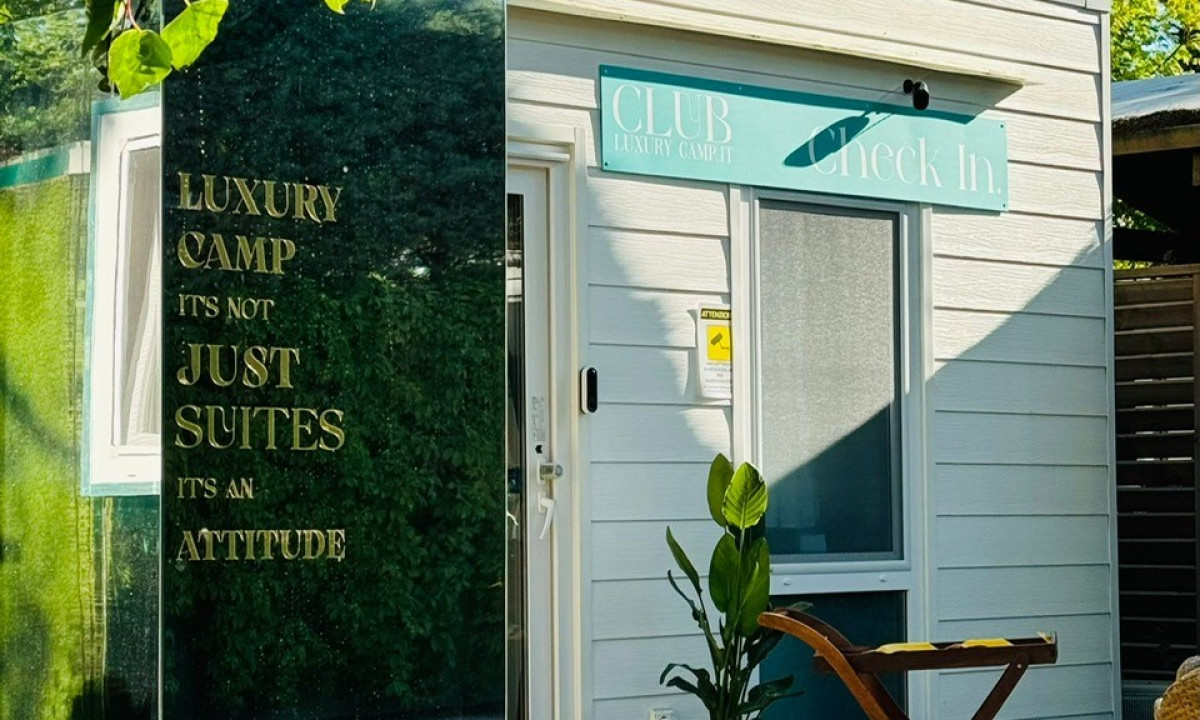 LUXURY
CAMP
IT'S NOT
JUST
SUITES
IT'S AN
ATTITUDE
CLUB
LUXURY CAMP.IT
Check In.
ATTENZIONE